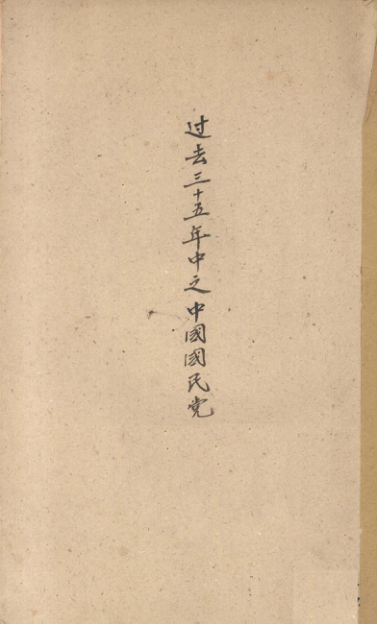 过去三十五年中之中國國民党